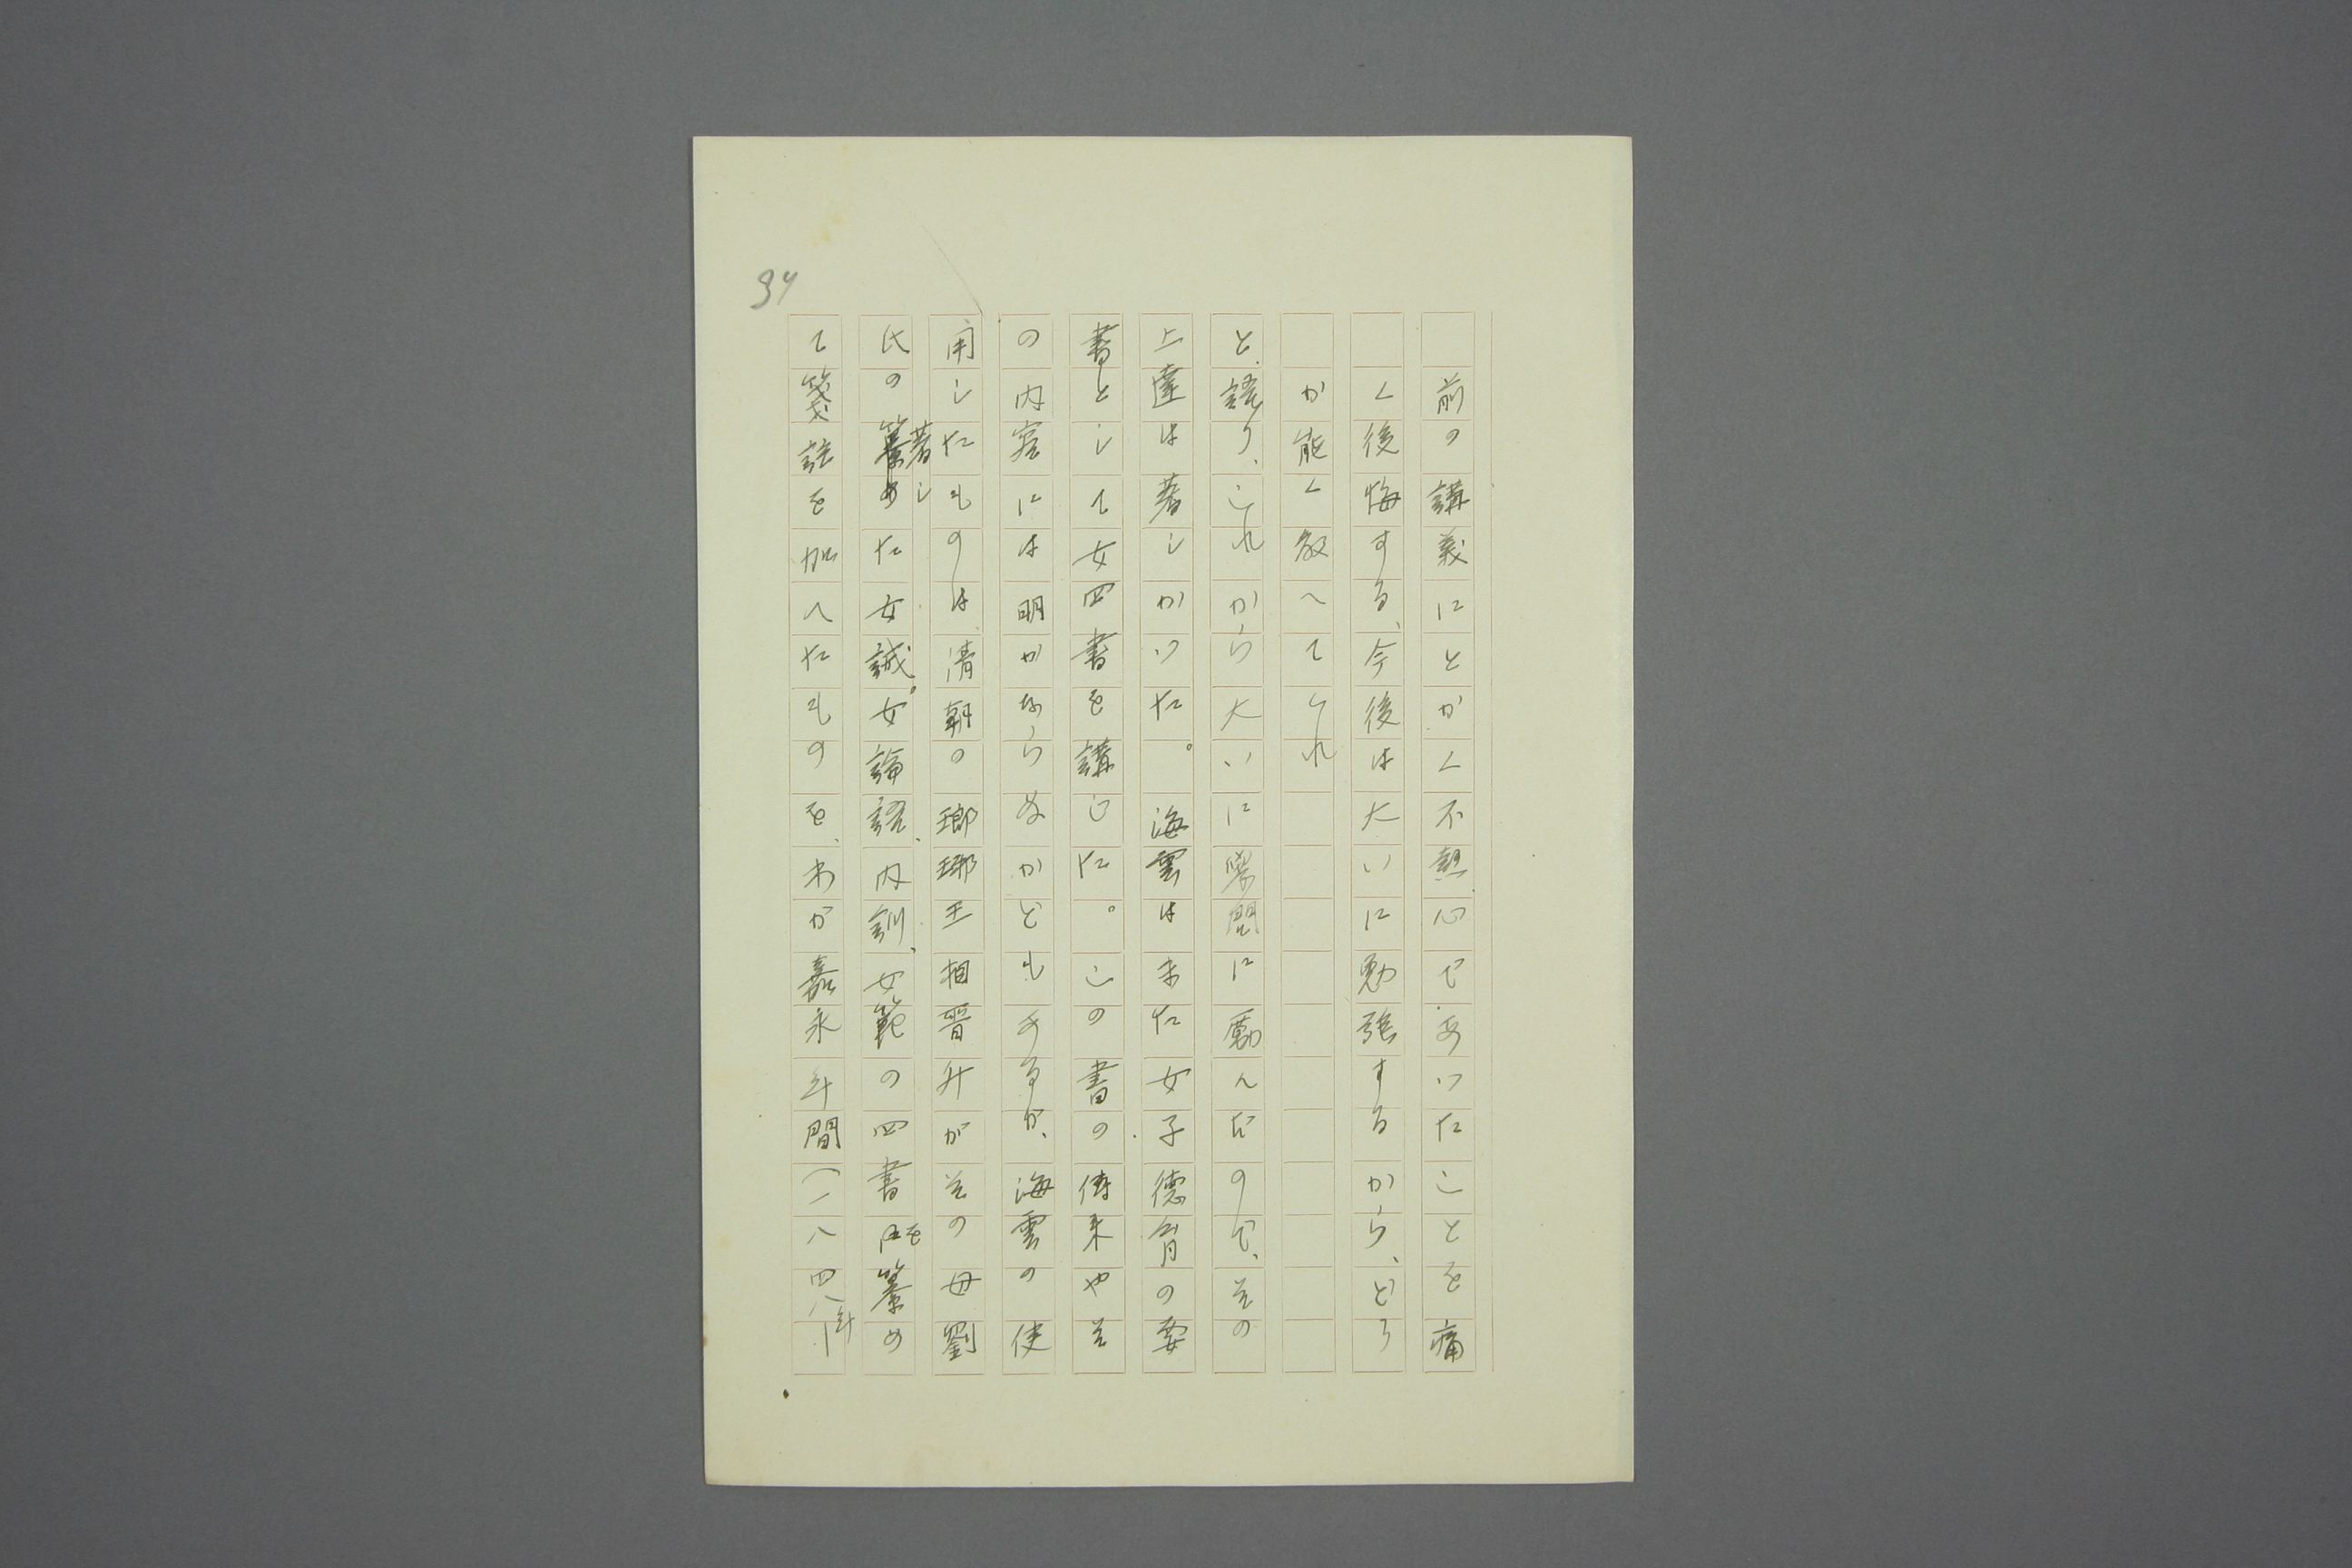 34
前の講義にとかく不熱心であつたことを痛
く後悔する、今後は大いに勉強するから、どう
か能く教へてくれ
と語り、これから大いに學問に勵んだので、その
上達は著しかつた。海雲はまた女子德育の要
書として女四書を講じた。この書の傳来やそ
の内容には明かならぬかどもあるが、海雲の使
用したものは清朝の瑯琊王相晋升がその母劉
氏の著した女誡。女論語、内訓、女範の四書を纂め
て箋註を加へたものを、わが嘉永年間（一八四八年—